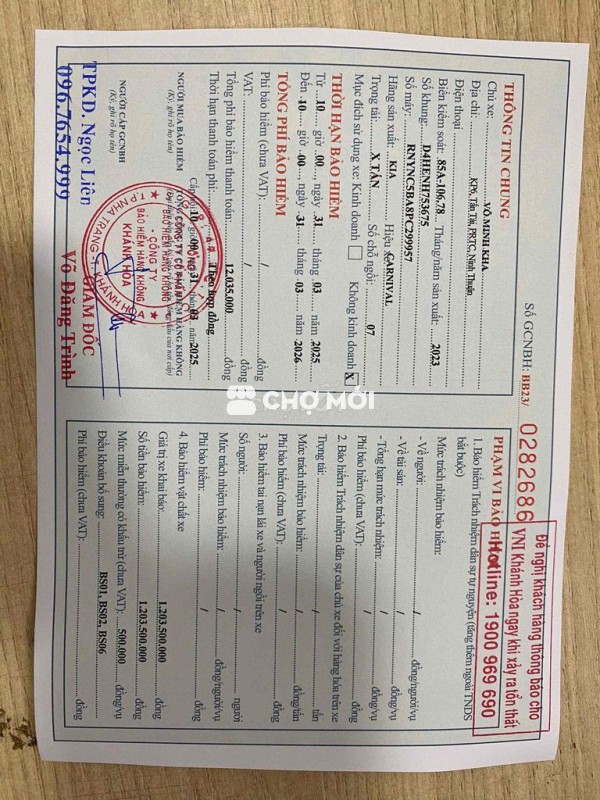 Số GCNBH: BB23/ 0282686
Đề nghị khách hàng thông báo cho
VNI Khánh Hòa ngay khi xảy ra tổn thất
Hotline: 1900 969 690
THÔNG TIN CHUNG
Chủ xe: VÕ MINH KHA
Địa chỉ: KP6, Tấn Tài, PRTC, Ninh Thuận
Điện thoại
Biển kiểm soát: 85A-106.78 Tháng/năm sản xuất: 2023
Số khung: D4HENH753675
Số máy: RNYNC5BA8PC299957
Hãng sản xuất: KIA Hiệu CARNIVAL
Trọng tải: X TẤN Số chỗ ngồi: 07
Mục đích sử dụng xe: Kinh doanh Không kinh doanh X
THỜI HẠN BẢO HIỂM
Từ 10 giờ 00, ngày 31 tháng 03 năm 2025
Đến 10 giờ 00, ngày 31 tháng 03 năm 2026
TỔNG PHÍ BẢO HIỂM
Phí bảo hiểm (chưa VAT): / đồng
VAT: / đồng
Tổng phí bảo hiểm thanh toán: 12.035.000 đồng
Thời hạn thanh toán phí: Theo hợp đồng
Cấp 10 giờ 00 31 03 năm 2025
NGƯỜI MUA BẢO HIỂM
(Ký, ghi rõ họ tên)
TỔNG CÔNG TY CỔ PHẦN BẢO HIỂM HÀNG KHÔNG
CÔNG TY
BẢO HIỂM HÀNG KHÔNG
KHÁNH HÒA
T.P NHA TRANG - T. KHÁNH HÒA
NGƯỜI CẤP GCNBH
(Ký, ghi rõ họ tên)
GIÁM ĐỐC
Võ Đăng Trình
TPKD. Ngọc Liên
096.7654.999
PHẠM VI BẢO H
1. Bảo hiểm Trách nhiệm dân sự tự nguyện (tăng thêm ngoài TNDS
bắt buộc)
Mức trách nhiệm bảo hiểm:
- Về người: / đồng/người/vụ
- Về tài sản: / đồng/vụ
- Tổng hạn mức trách nhiệm: / đồng/vụ
Phí bảo hiểm (chưa VAT): / đồng
2. Bảo hiểm Trách nhiệm dân sự của chủ xe đối với hàng hóa trên xe
Trọng tải: / tấn
Mức trách nhiệm bảo hiểm: / đồng/tấn
Phí bảo hiểm (chưa VAT): / đồng
3. Bảo hiểm tai nạn lái xe và người ngồi trên xe
Số người: / người
Mức trách nhiệm bảo hiểm: / đồng/người/vụ
Phí bảo hiểm: / đồng
4. Bảo hiểm vật chất xe
Giá trị xe khai báo: 1.203.500.000 đồng
Số tiền bảo hiểm: 1.203.500.000 đồng
Mức miễn thường có khấu trừ (chưa VAT): 500.000 đồng/vụ
Điều khoản bổ sung: BS01, BS02, BS06
Phí bảo hiểm (chưa VAT): đồng
CHỢ MỚI